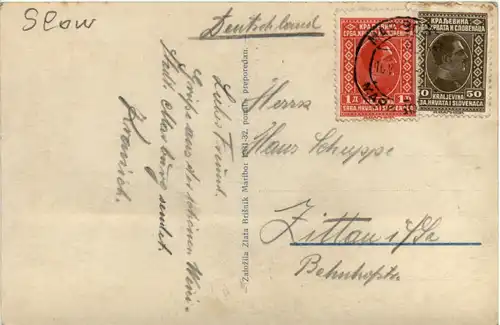 Slow
Deutschland
Lieber Freund.
Grüße aus der schönen
Stadt Marburg sendet
Založila Zlata Brišnik Maribor 1931-32. ponatis prepovedan.
КРАЉЕВИНА
СРБА, ХРВАТА И СЛОВЕНАЦА
1 Д 1
SRBA, HRVATA I SLOVENACA
КРАЉЕВИНА
ХРВАТА И СЛОВЕНАЦА
0 50
KRALJEVINA
HRVATA I SLOVENACA
Herrn
Hans Schuppe
Zittau i/Sa
Bahnhofstr.